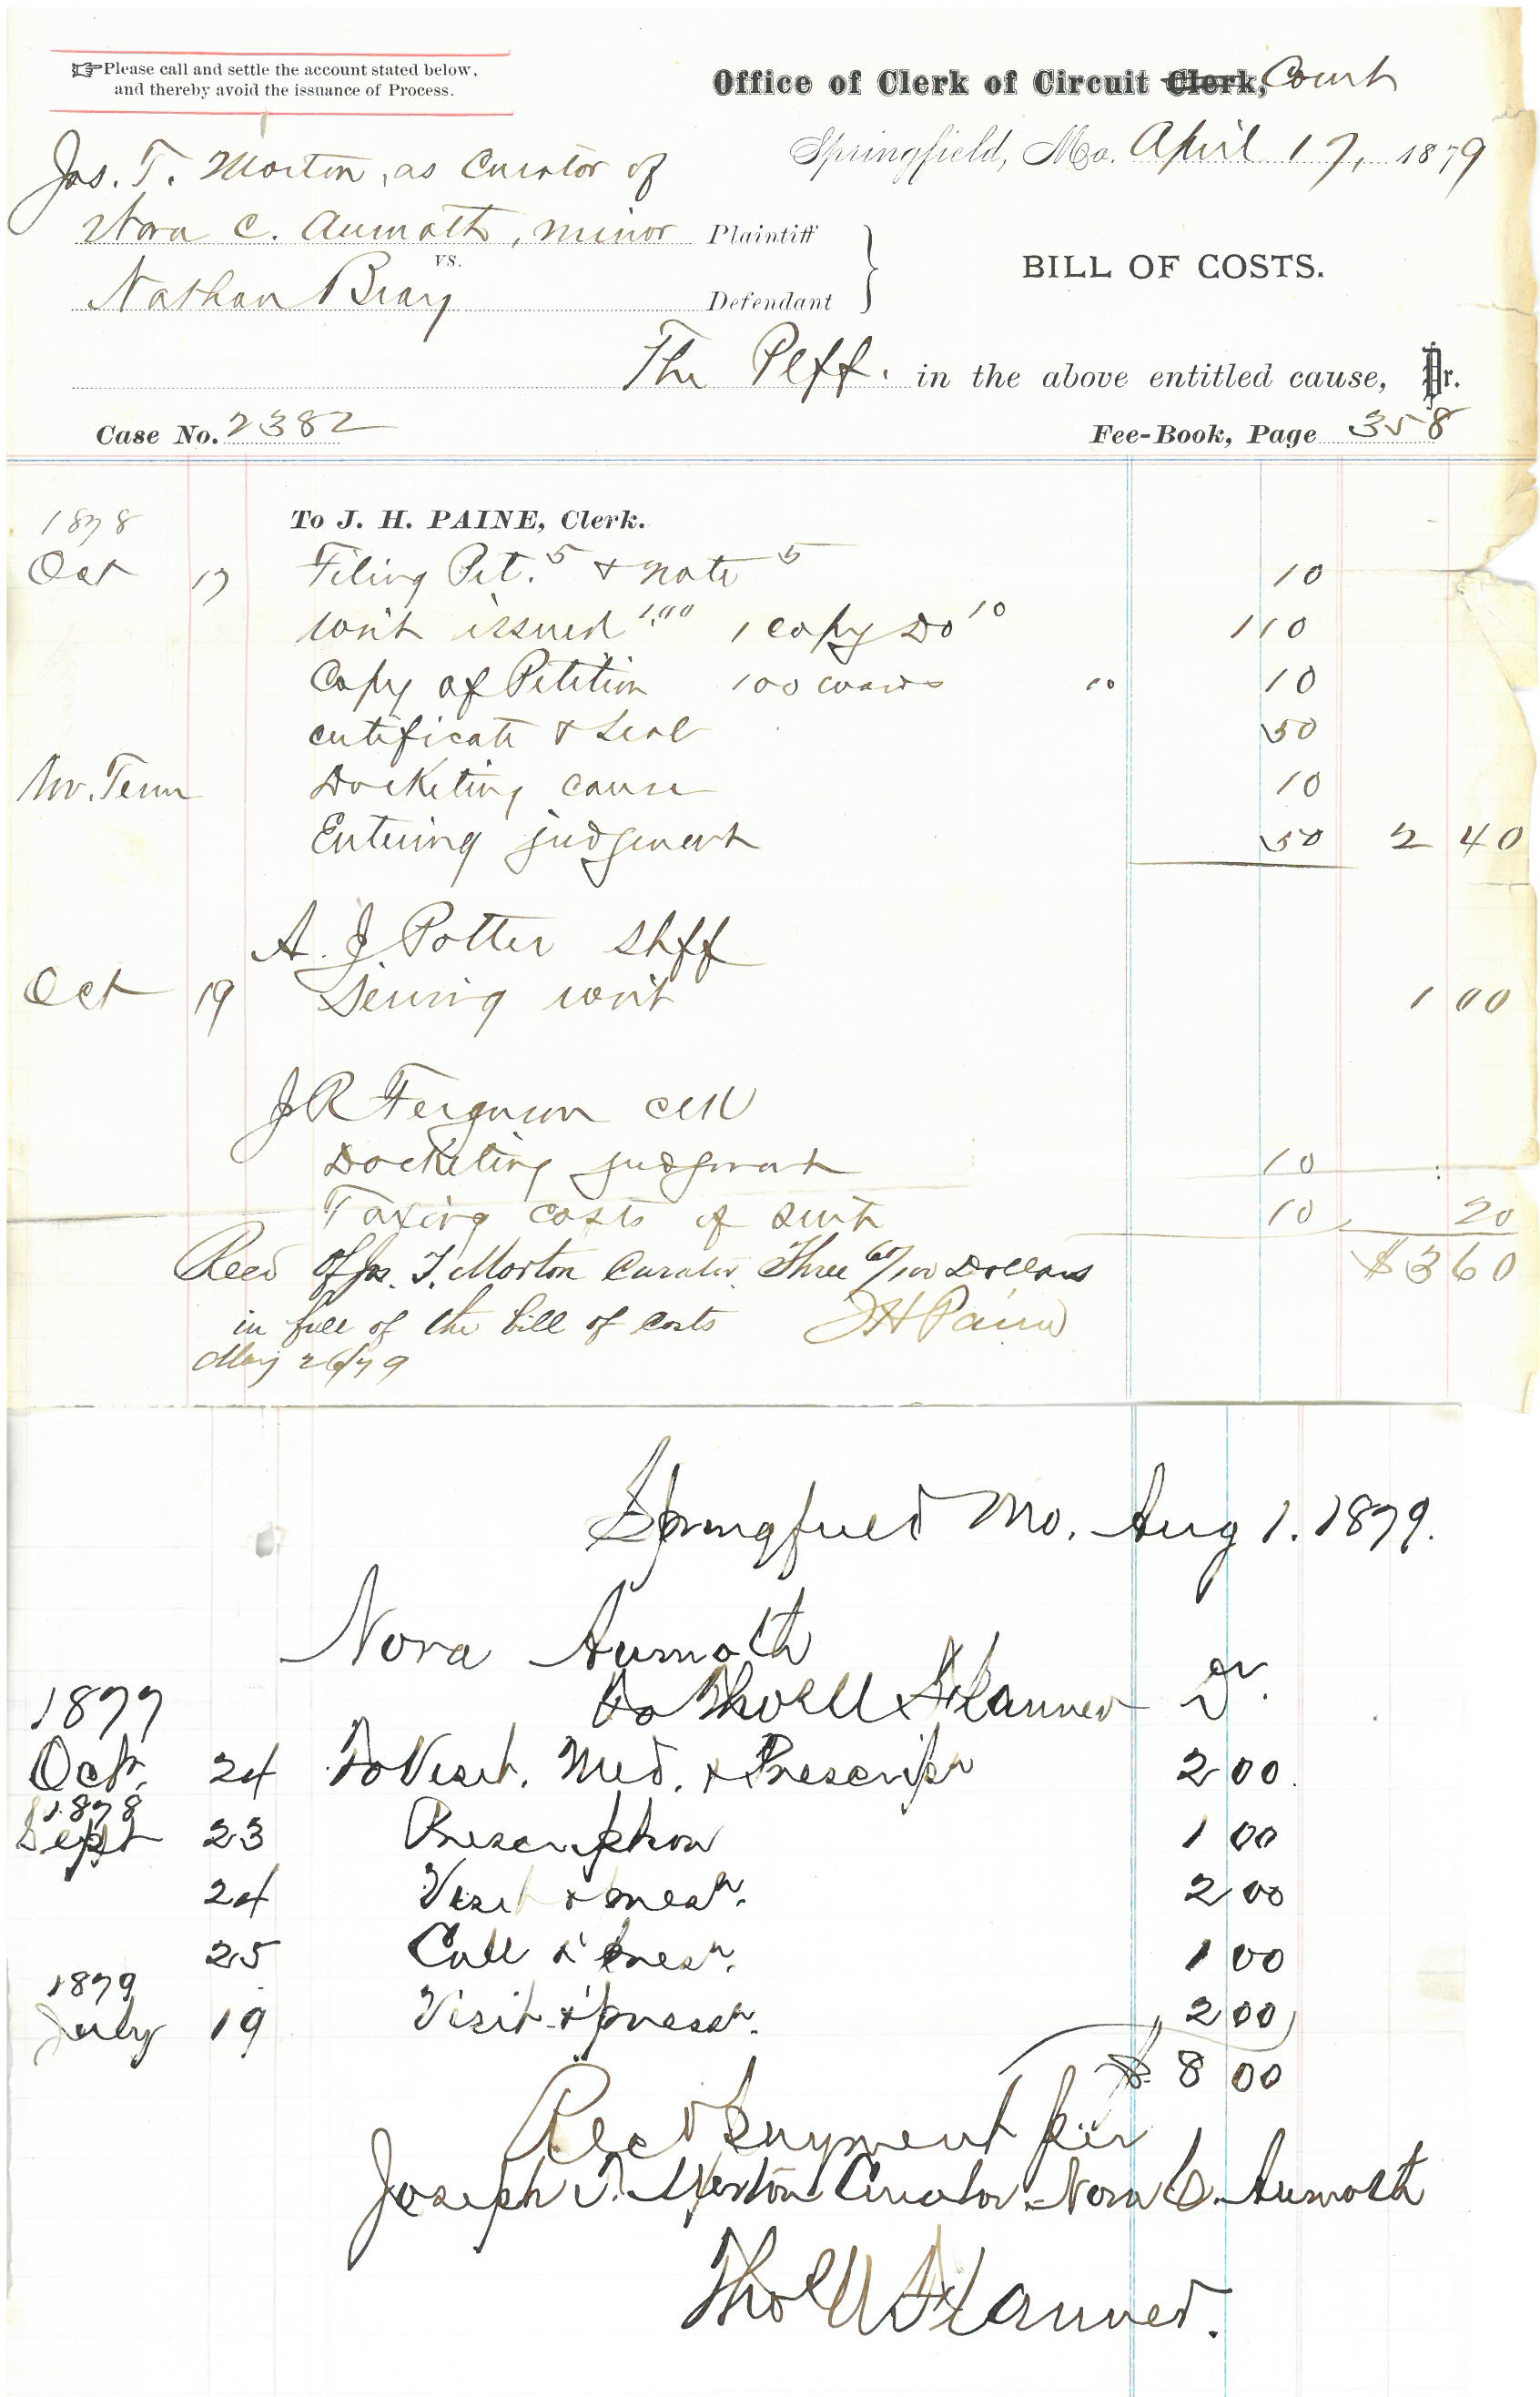 ☞Please call and settle the account stated below,
and thereby avoid the issuance of Process.
Office of Clerk of Circuit Clerk, Court
Springfield, Mo. April 17, 1879
Jos. T. Morton, as Curator of
Nora C. Aumoth, minor Plaintiff
vs.
Nathan Bray Defendant
BILL OF COSTS.
The Plff. in the above entitled cause, Dr.
Case No. 2382 Fee-Book, Page 358
1878 To J. H. PAINE, Clerk.
Oct 17 Filing Pet. 5 & note 5 10
Writ issued 1.00 1 copy Do 10 1 10
Copy of Petition 100 words 10 10
certificate & Seal 50
Nov. Term Docketing cause 10
Entering judgment 50 2 40
A. J. Potter Shff
Oct 19 Serving writ 1 00
J R Ferguson Clk
Docketing judgment 10
Taxing costs of suit 10 20
Recd of Jos. T. Morton Curator Three 60/100 Dollars $3 60
in full of the bill of costs J H Paine
May 26/79
Springfield Mo. Aug 1. 1879.
Nora Aumoth
1877 To Thos U Flanner Dr.
Oct. 24 To Visit, Med. & Prescripn 2 00
1878
Sept 23 Prescription 1 00
24 Visit & presn. 2 00
25 Call & presn. 1 00
1879
July 19 Visit & presn. 2 00
$ 8 00
Recd payment per
Joseph T. Morton Curator Nora C. Aumoth
Thos U Flanner.